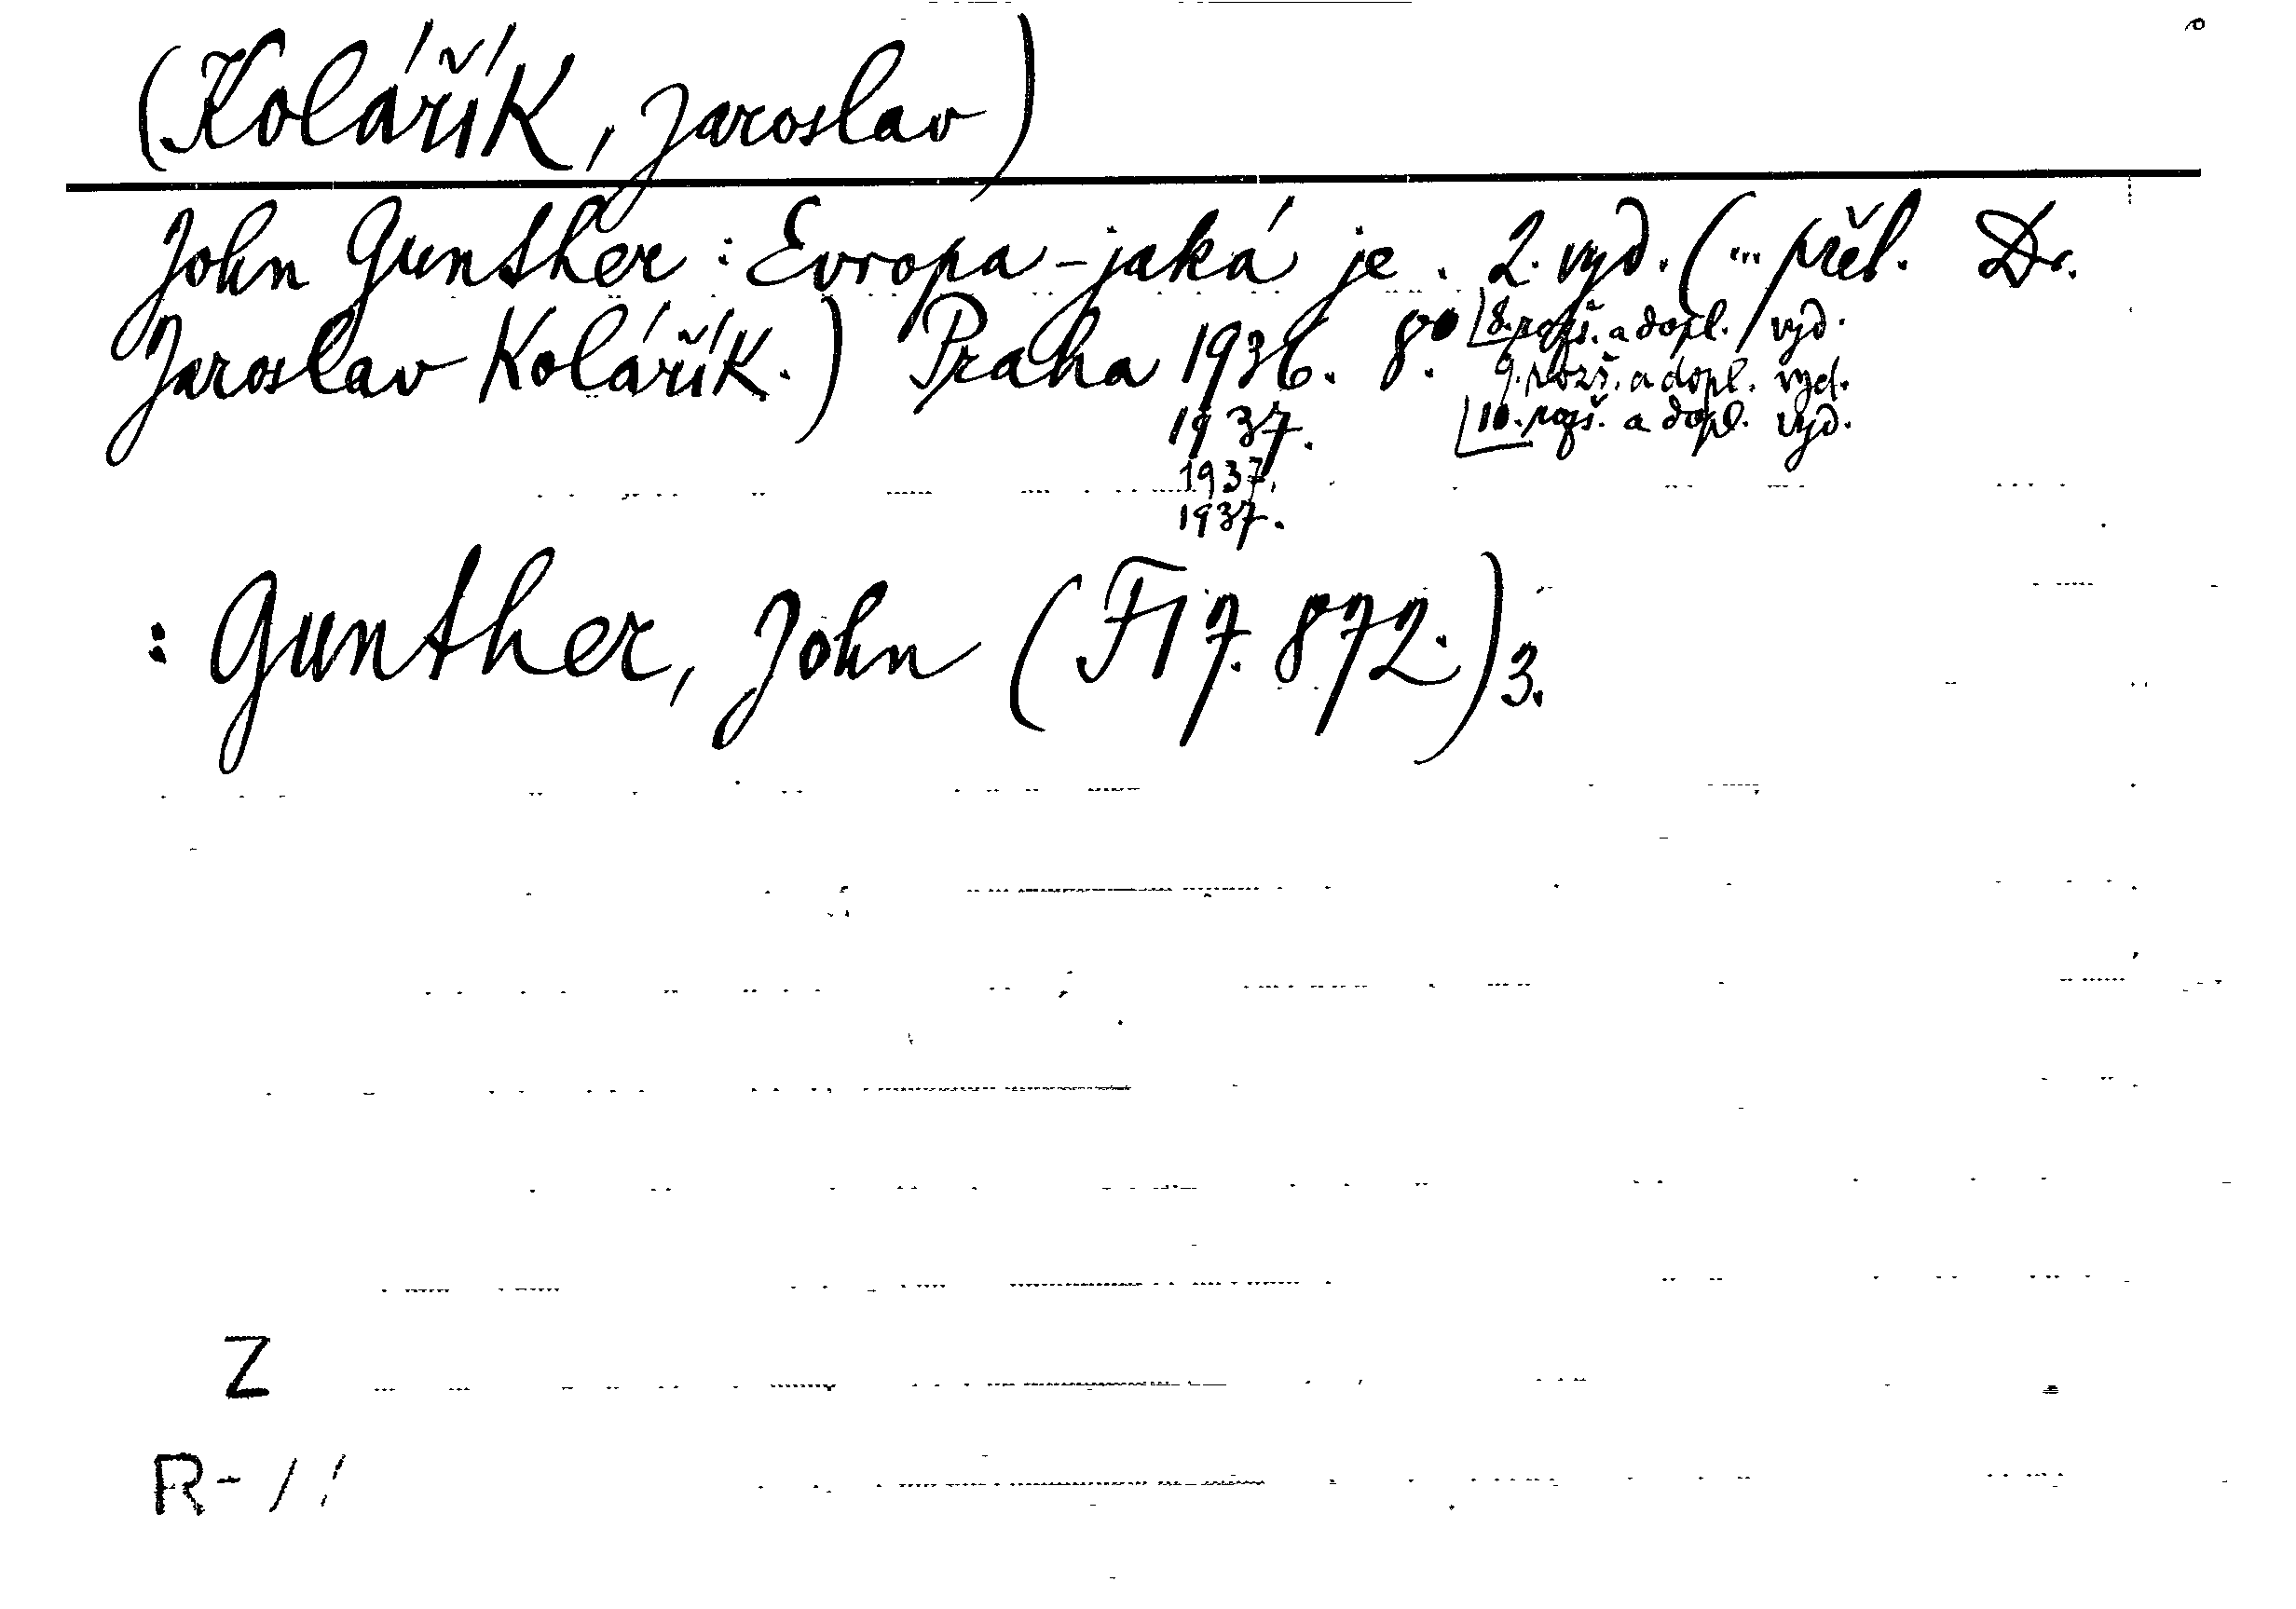 (Kolářík, Jaroslav)
John Gunther: Evropa - jaká je. 2. vyd. (... přel. Dr.
Jaroslav Kolářík.) Praha 1936. 8°.
8. rozš. a dopl. vyd.
9. rozš. a dopl. vyd.
10. rozš. a dopl. vyd.
1937.
1937.
1937.
: Gunther, John (F 17.872.) 3.
Z
R-//